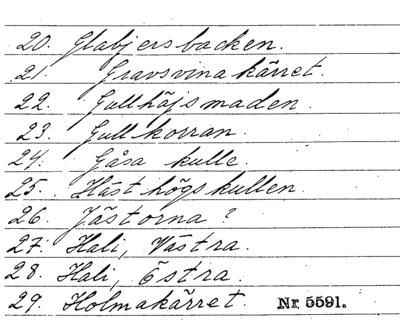 20. Glabjersbacken.
21. Gravsvinakärret.
22. Gullhöjsmaden.
23. Gullkorran.
24. Gåsa kulle.
25. Hästhögskullen.
26. Jästorna?
27. Hali, Västra.
28. Hali, Östra.
29. Holmakärret. Nr. 5591.